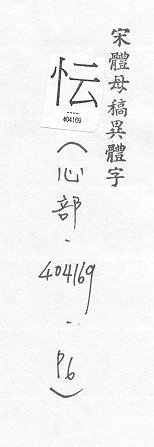 宋體母稿異體字
忶
404169
（心部-404169-P6）